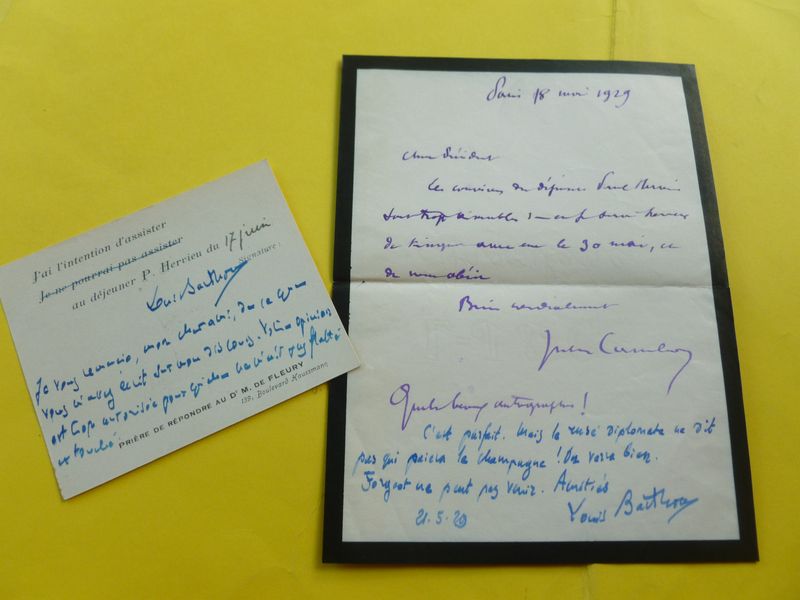 J'ai l'intention d'assister
Je ne pourrai pas assister
au déjeuner P. Hervieu du 17 juin
Signature:
Louis Barthou
Je vous remercie, mon cher ami, de ce que
vous m'avez écrit sur mon discours. Votre opinion
est trop autorisée pour que je n'en sois pas flatté
et touché
PRIÈRE DE RÉPONDRE AU Dr M. DE FLEURY
139, Boulevard Haussmann
Paris 18 mai 1929
Cher Président
Les convives du déjeuner Paul Hervieu
sont trop aimables! et je serai heureux
de le 30 mai, ce
de
Bien cordialement
Jules Cambon
Quels beaux autographes!
C'est parfait. Mais le rusé diplomate ne dit
pas qui paiera le champagne! On verra bien.
ne peut pas venir. Amitiés
21.5.29 Louis Barthou